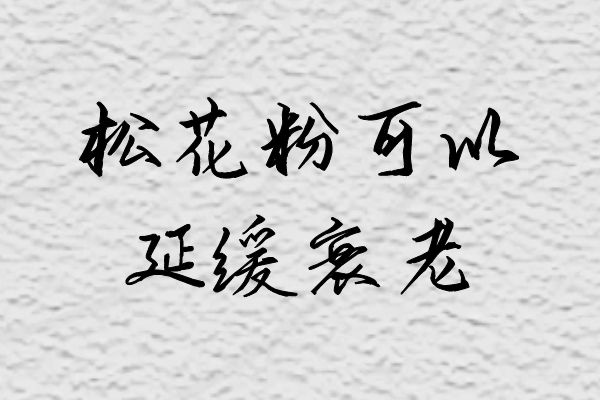 松花粉可以
延缓衰老